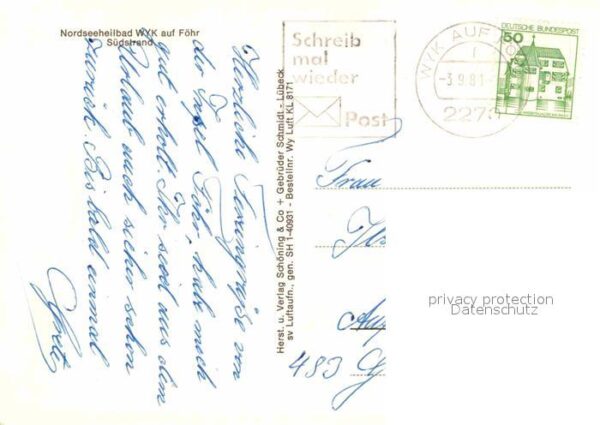 Nordseeheilbad WYK auf Föhr
Südstrand
Herzliche Feriengrüße von
der Insel Föhr, hab mich
gut erholt. Ihr seid aus dem
Urlaub auch sicher schon
zurück. Bis bald einmal
Herst. u. Verlag Schöning & Co + Gebrüder Schmidt - Lübeck
sv Luftaufn., gen. SH 1-40931 - Bestellnr. Wy Luft KL 8171
Schreib
mal
wieder
Post
WYK AUF FÖ
-3.9.81-
2270
DEUTSCHE BUNDESPOST
50
Frau
483 G
privacy protection
Datenschutz